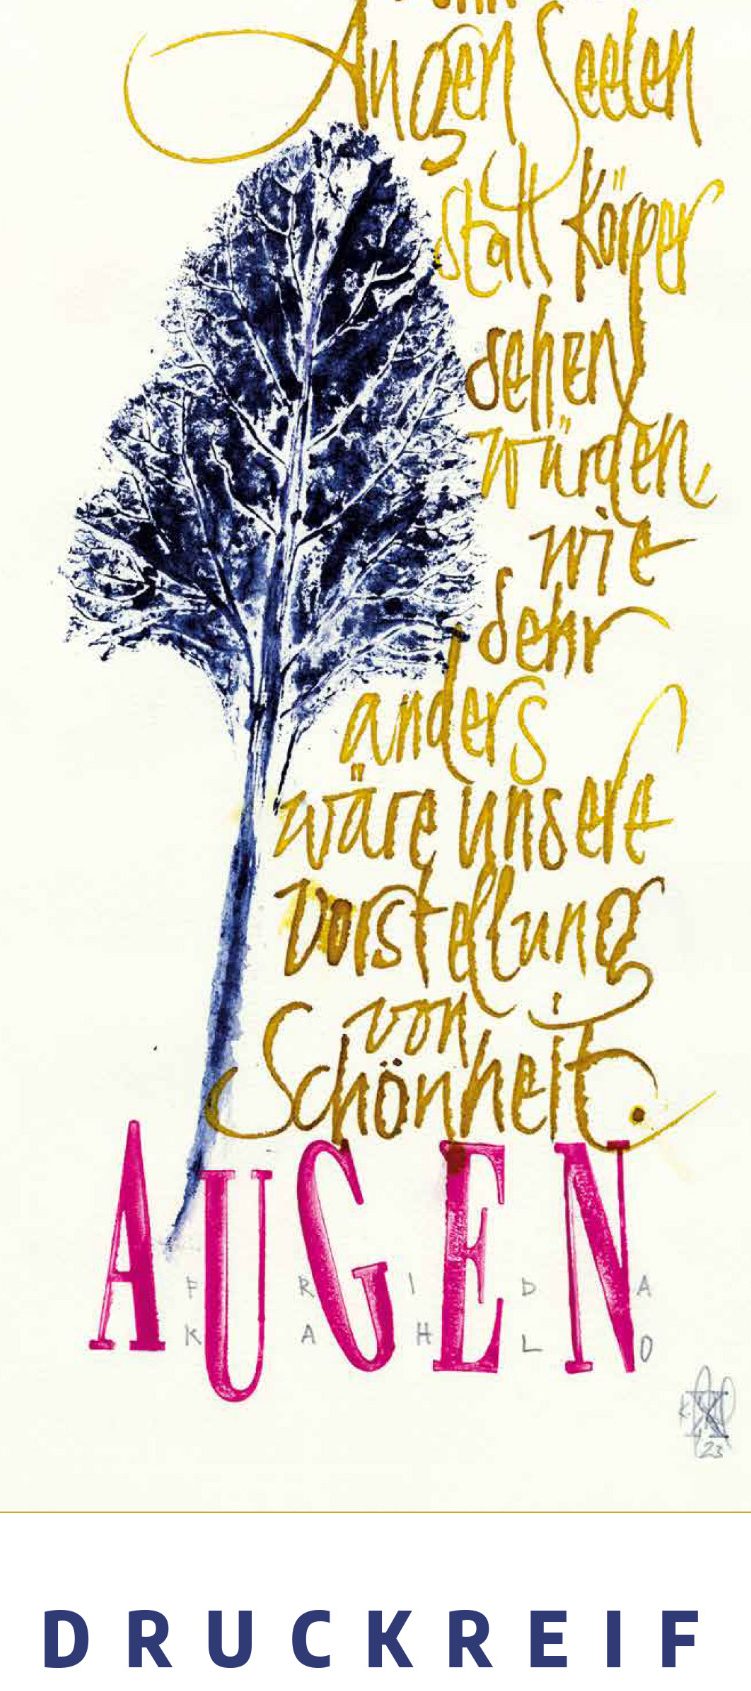 Augen Seelen
statt Körper
sehen
würden,
wie
sehr
anders
wäre unsere
Vorstellung
von
Schönheit.
AUGEN
FRIDA
KAHLO
23
DRUCKREIF